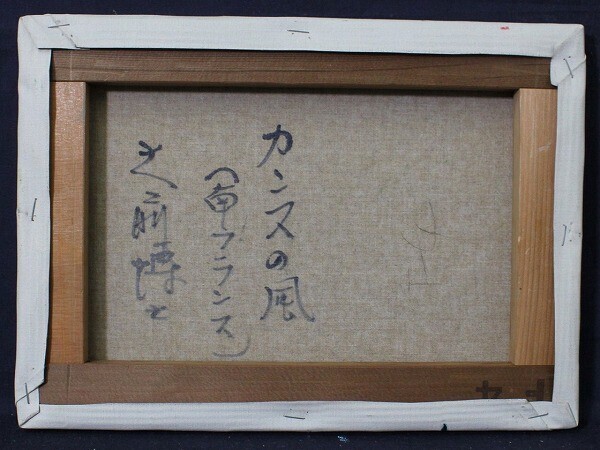 カンヌの風
(南フランス)
大前博士